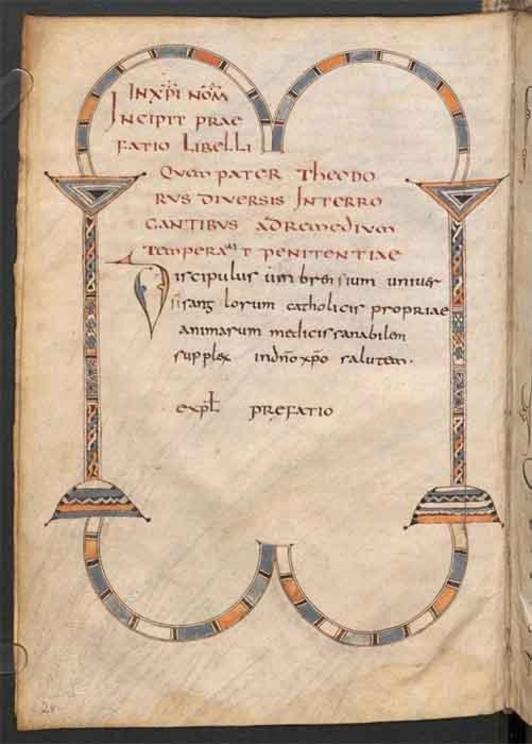 IN XPI NOM
INCIPIT PRAE
FATIO LIBELLI
QUEM PATER THEODO
RUS DIVERSIS INTERRO
GANTIBUS AD REMEDIUM
TEMPERAUIT PENITENTIAE
Discipulus umbrensium univer
sis anglorum catholicis propriae
animarum medicis sanabilem
supplex in dno xpo salutem.
expl PREFATIO